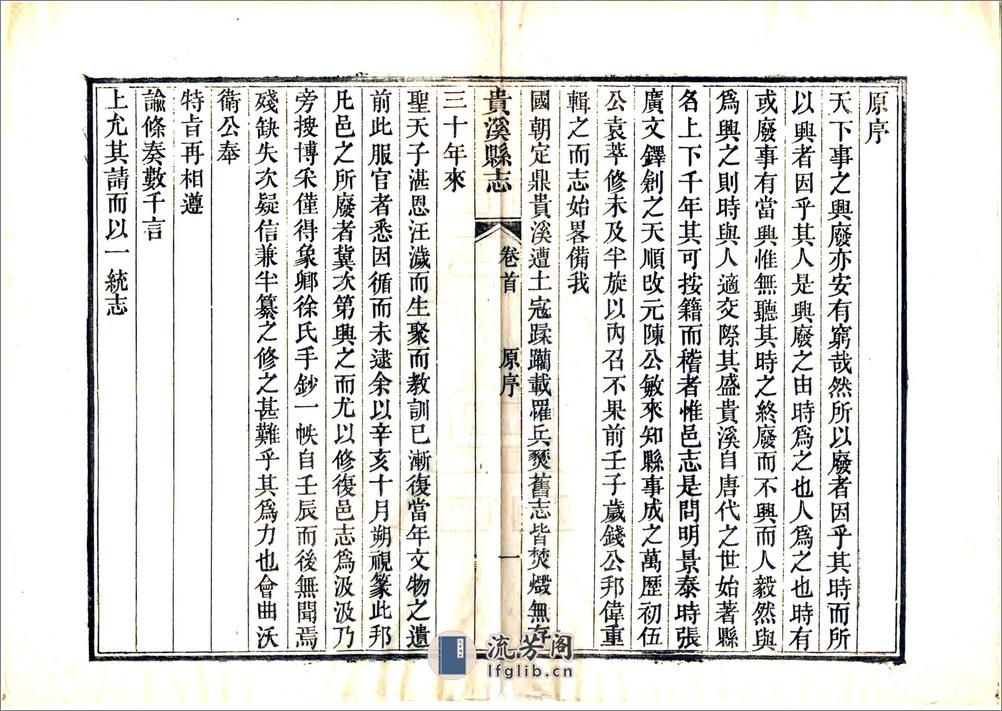 原序
天下事之興廢亦安有窮哉然所以廢者因乎其時而所
以興者因乎其人是興廢之由時爲之也人爲之也時有
或廢事有當興惟無聽其時之終廢而不興而人毅然與
爲興之則時與人適交際其盛貴溪自唐代之世始著縣
名上下千年其可按籍而稽者惟邑志是問明景泰時張
廣文鐸創之天順改元陳公敏來知縣事成之萬歷初伍
公袁萃修未及半旋以內召不果前壬子歲錢公邦偉重
輯之而志始畧備我
國朝定鼎貴溪遭土寇蹂躪載罹兵燹舊志皆焚燬無存
貴溪縣志
卷首
原序
一
三十年來
聖天子湛恩汪濊而生聚而教訓已漸復當年文物之遺
前此服官者悉因循而未逮余以辛亥十月朔視篆此邦
凡邑之所廢者冀次第興之而尤以修復邑志爲汲汲乃
旁搜博采僅得象鄉徐氏手鈔一帙自壬辰而後無聞焉
殘缺失次疑信兼半纂之修之甚難乎其爲力也會曲沃
衛公奉
特旨再相遵
諭條奏數千言
上允其請而以一統志
流芳阁
lfglib.cn